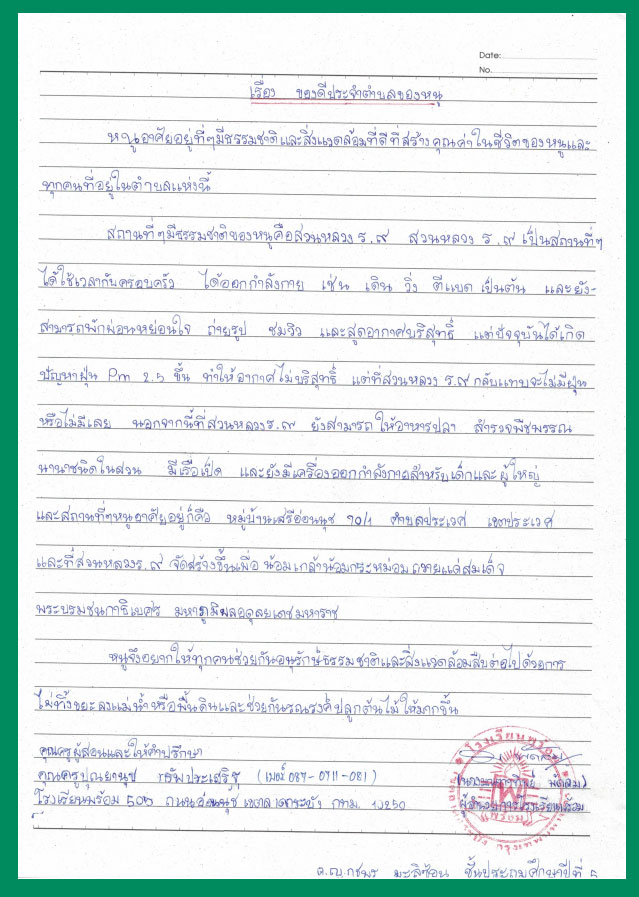 Date:
No.
เรื่อง ของดีประจำตำบลของหนู
หนูอาศัยอยู่ที่ๆมีธรรมชาติและสิ่งแวดล้อมที่ดีที่สร้างคุณค่าในชีวิตของหนูและ
ทุกคนที่อยู่ในตำบลแห่งนี้
สถานที่ๆมีธรรมชาติของหนูคือสวนหลวง ร.๙ สวนหลวง ร.๙ เป็นสถานที่ๆ
ได้ใช้เวลากับครอบครัว ได้ออกกำลังกาย เช่น เดิน วิ่ง ตีแบด เป็นต้น และยัง-
สามารถพักผ่อนหย่อนใจ ถ่ายรูป ชมวิว และสูดอากาศบริสุทธิ์ แต่ปัจจุบันได้เกิด
ปัญหาฝุ่น Pm 2.5 ขึ้น ทำให้อากาศไม่บริสุทธิ์ แต่ที่สวนหลวง ร.๙ กลับแทบจะไม่มีฝุ่น
หรือไม่มีเลย นอกจากนี้ที่สวนหลวงร.๙ ยังสามารถให้อาหารปลา สำรวจพืชพรรณ
นานาชนิดในสวน มีเรือเป็ด และยังมีเครื่องออกกำลังกายสำหรับเด็กและผู้ใหญ่
และสถานที่ๆหนูอาศัยอยู่ก็คือ หมู่บ้านเสรีอ่อนนุช ตำบลประเวศ เขตประเวศ
และที่สวนหลวงร.๙ จัดสร้างขึ้นเพื่อ น้อมเกล้าน้อมกระหม่อม ถวายแด่สมเด็จ
พระบรมชนกาธิเบศร มหาภูมิพลอดุลยเดชมหาราช
หนูจึงอยากให้ทุกคนช่วยกันอนุรักษ์ธรรมชาติและสิ่งแวดล้อมสืบต่อไปด้วยการ
ไม่ทิ้งขยะลงแม่น้ำหรือพื้นดินและช่วยกันรณรงค์ปลูกต้นไม้ให้มากขึ้น
คุณครูผู้สอนและให้คำปรึกษา
คุณครูปุณยานุช (เบอร์ 087-0711-081)
โรงเรียนพร้อม ถนนอ่อนนุช เขตลาดกระบัง กทม.
ผู้อำนวยการโรงเรียน
ด.ญ.กชพร ชั้นประถมศึกษาปีที่ 5